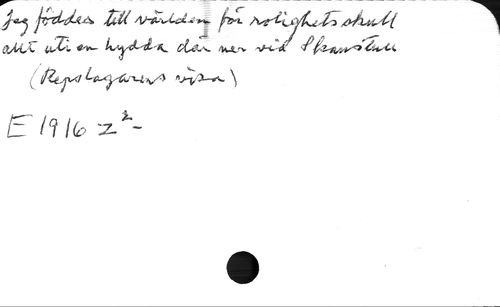 Jag föddes till världen för rolighets skull
allt uti en hydda där ner vid Skanstull
(Repslagarens visa)
E 1916 z² -